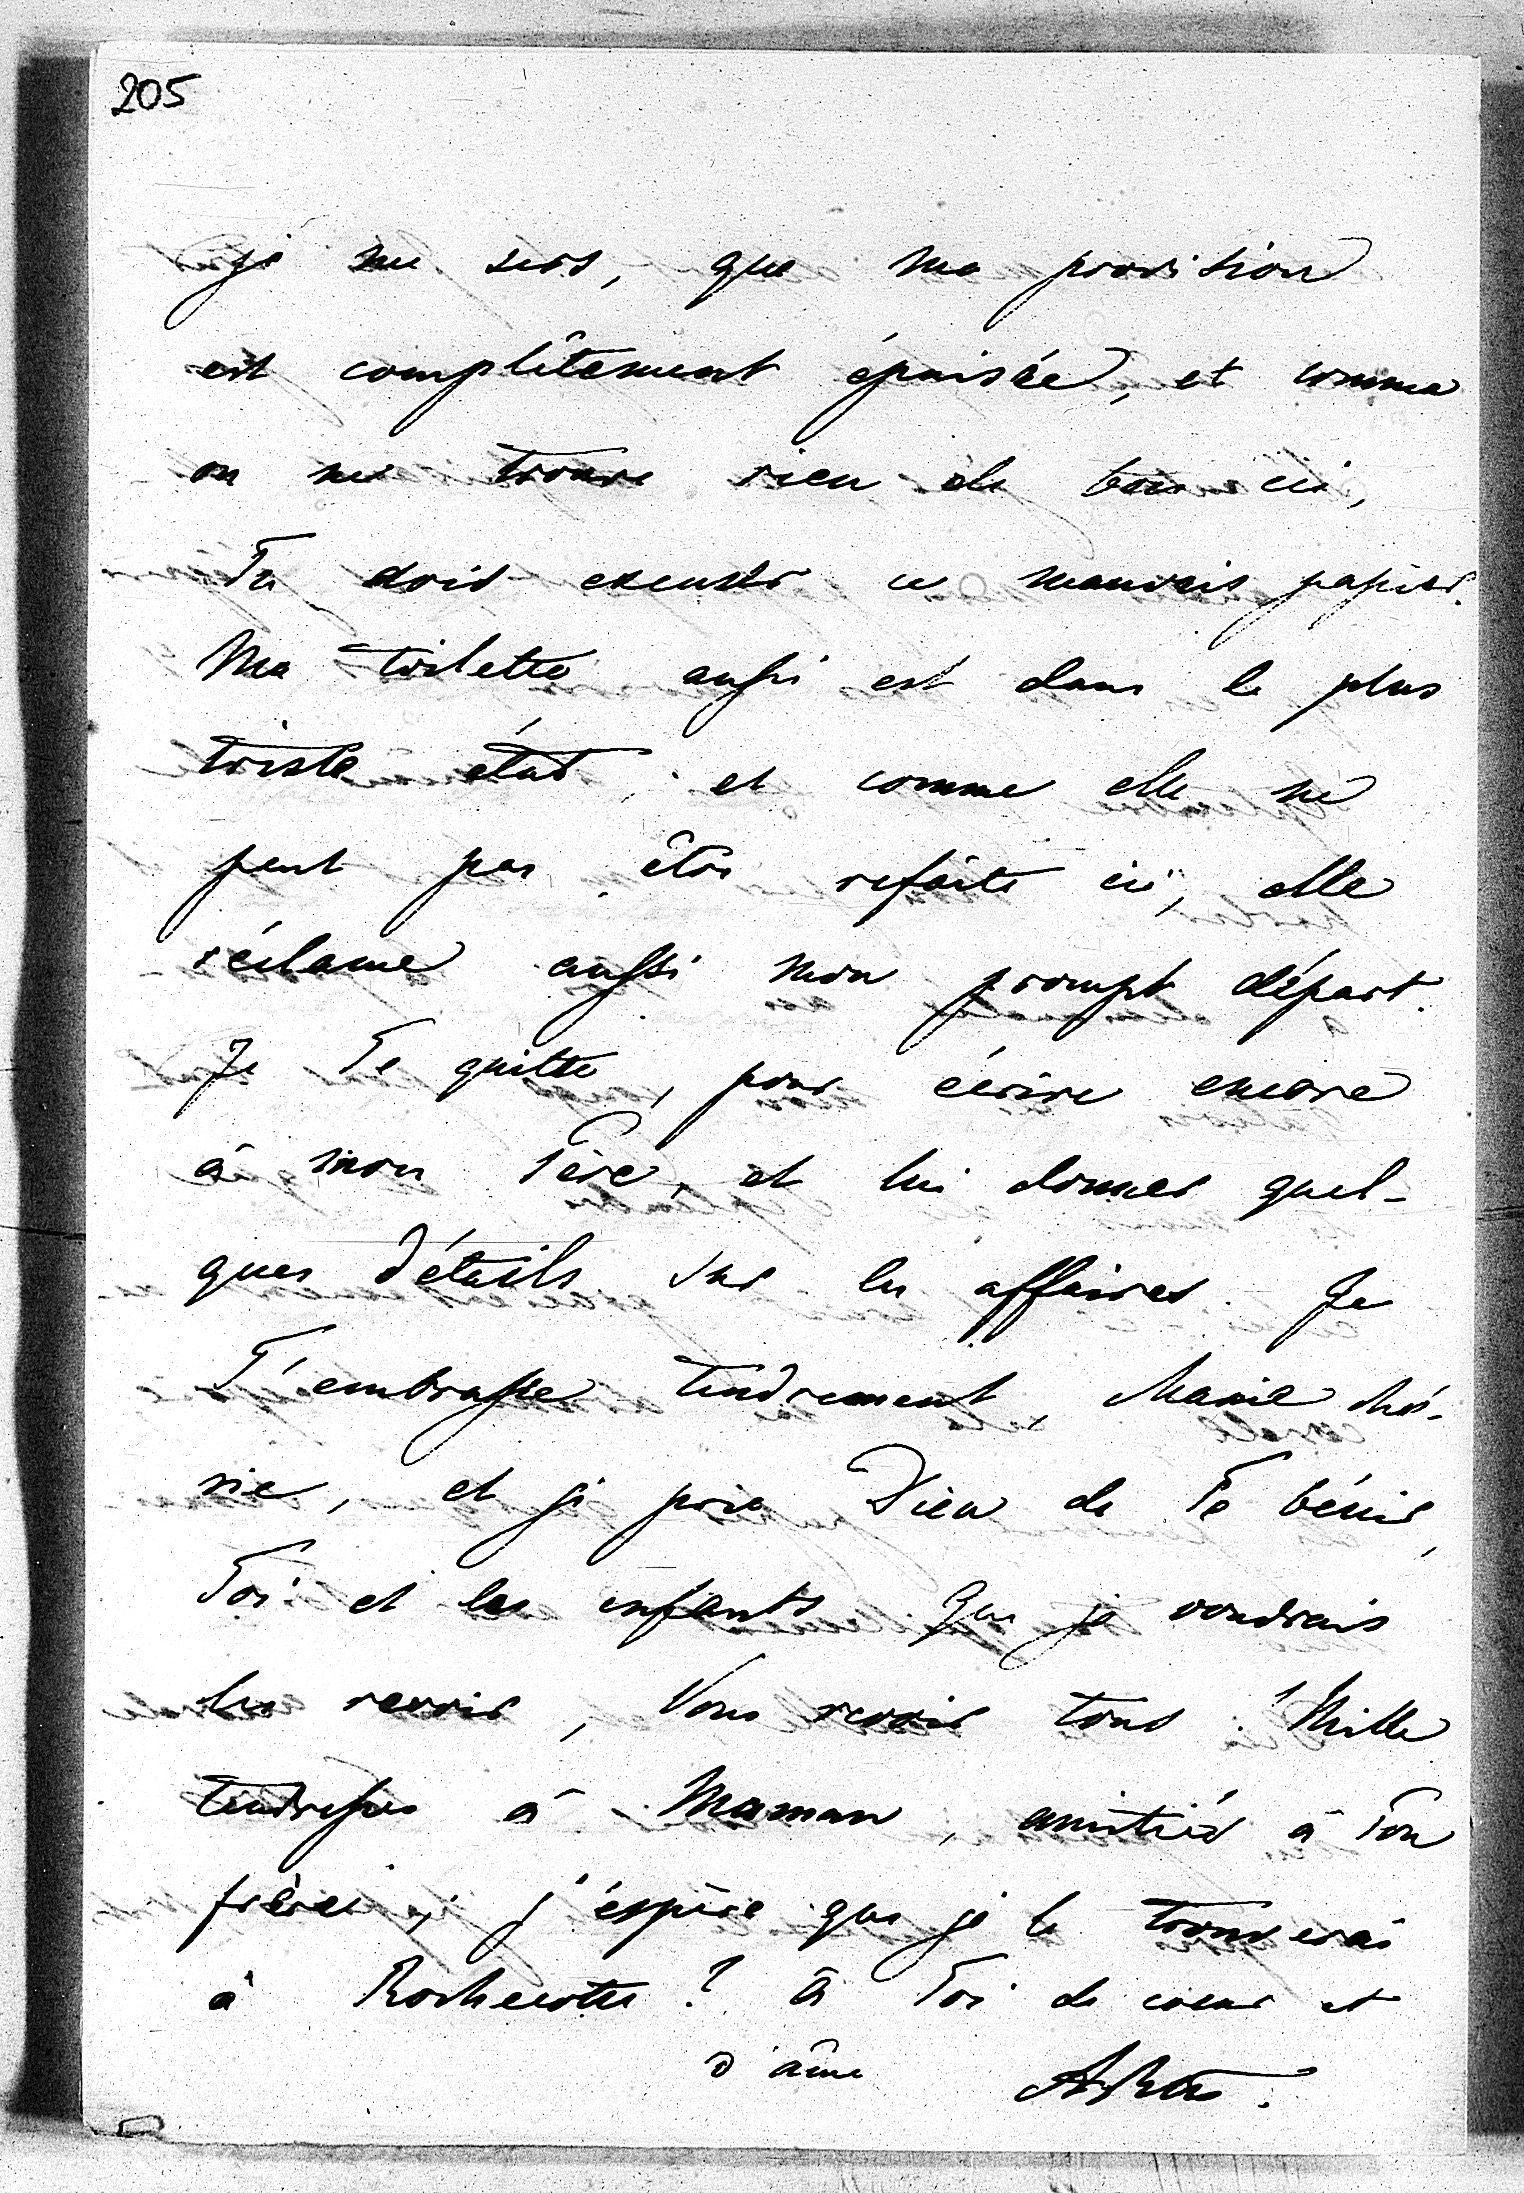 205
je me sers, que ma provision
est complètement épuisée, et comme
on ne trouve rien de bon ici,
Tu dois excuser ce mauvais papier.
Ma toilette aussi est dans le plus
triste état, et comme elle ne
peut pas être refaite ici, elle
réclame aussi mon prompt départ.
Je Te quitte, pour écrire encore
à mon Père, et lui donner quel-
ques détails sur les affaires. Je
T'embrasse tendrement, Marie ché-
rie, et je prie Dieu de Te bénir,
Toi et les enfants. Que je voudrais
les revoir, Vous revoir tous! Mille
tendresses à Maman, amitiés à Ton
frère; j'espère que je le trouverai
à Rochecotte? à Toi de coeur et
d'âme